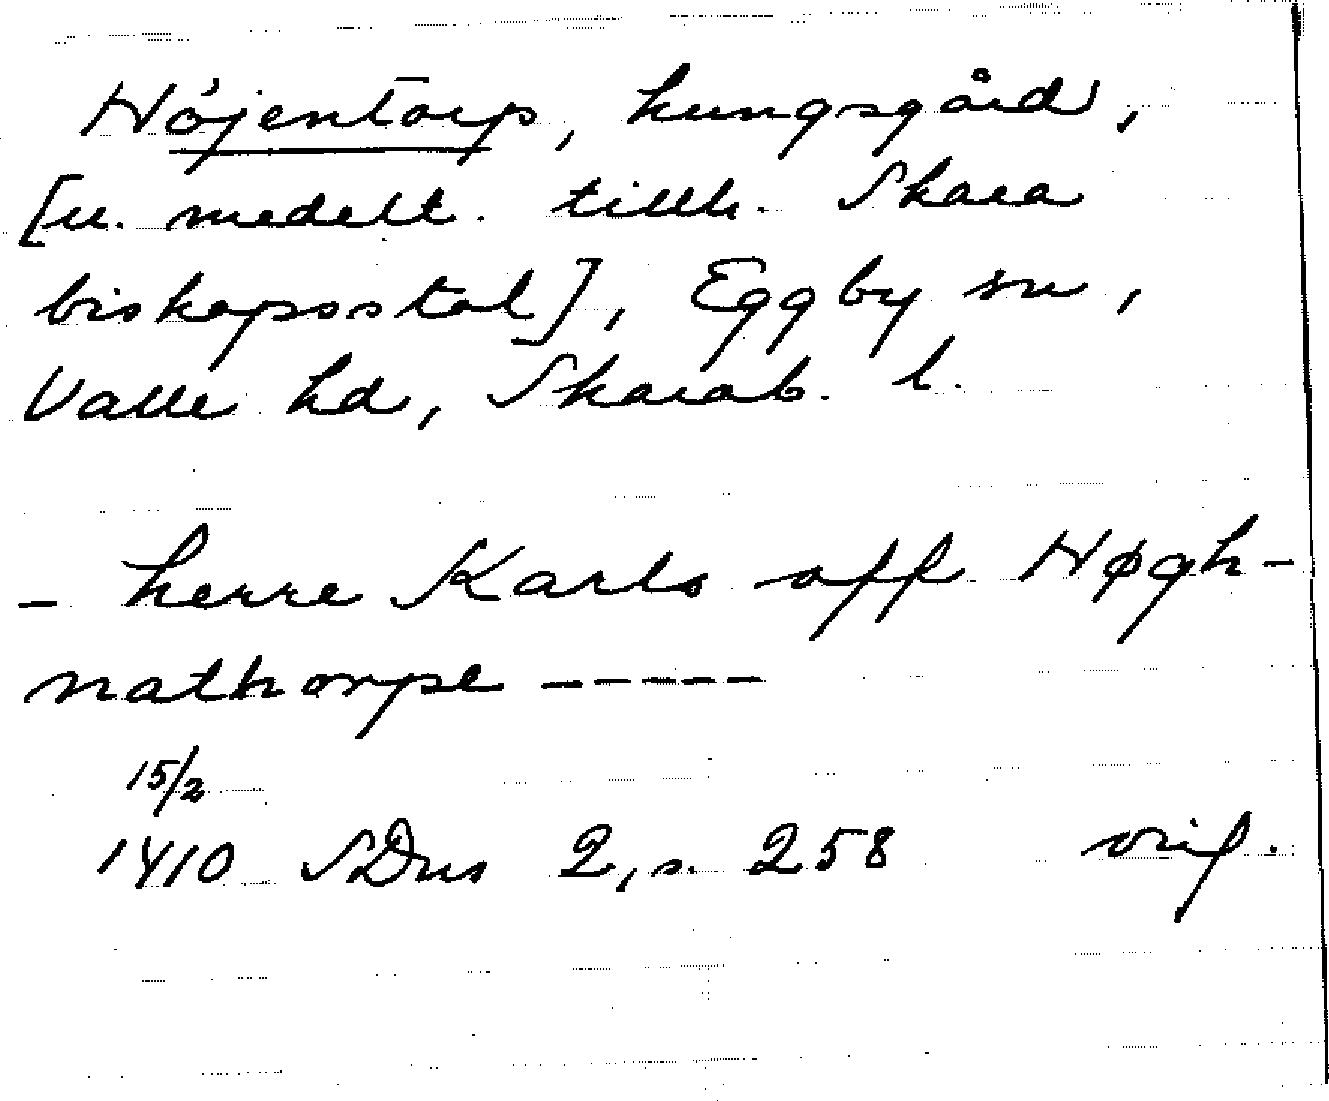 Höjentorp, kungsgård,
[u. medelt. tillh. Skara
biskopsstol], Eggby sn,
Valle hd, Skarab. l.
- herre Karls aff Høgh-
nathorpe -----
15/2
1410 SDns 2, s. 258 orig.